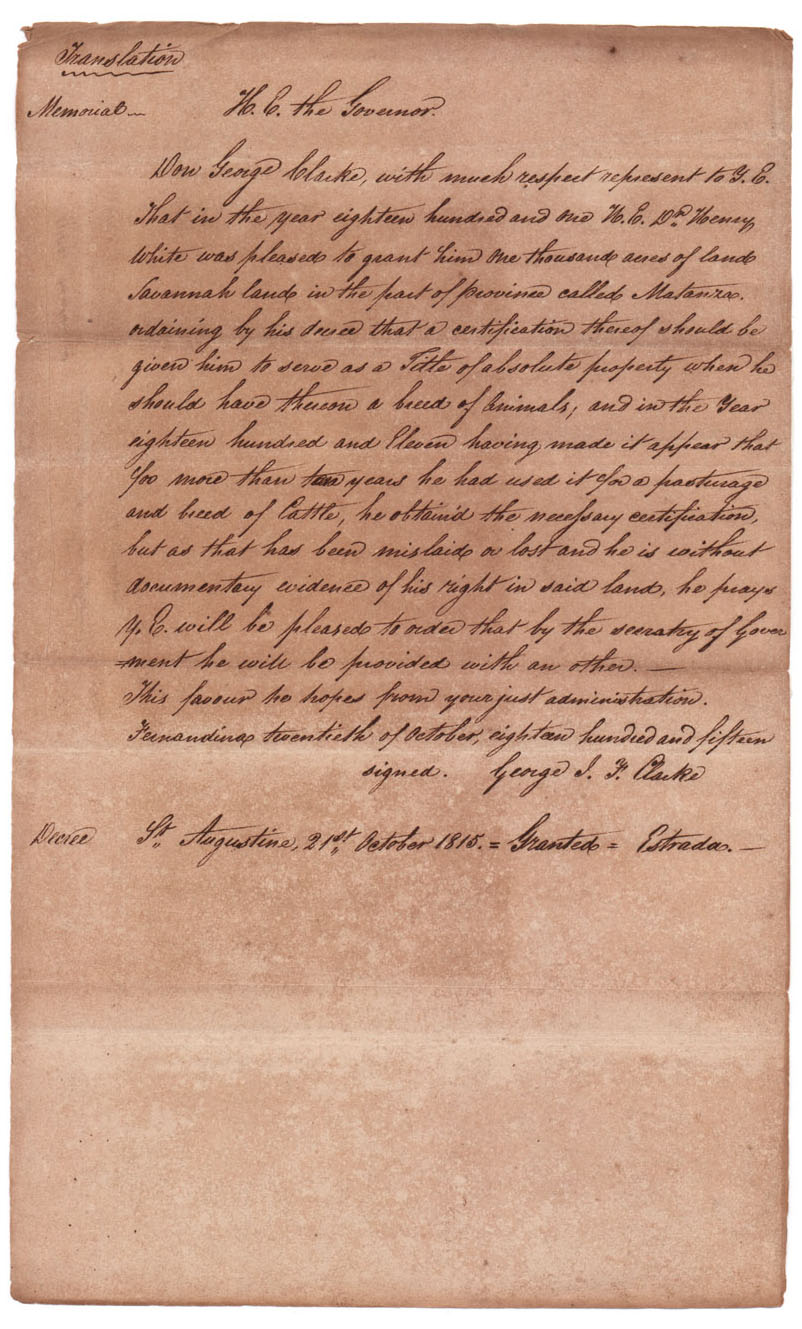 Translation
Memorial — H. E. the Governor.
Don George Clarke, with much respect represent to Y. E.
That in the year eighteen hundred and one H. E. Dn. Henry
White was pleased to grant him one thousand acres of land
Savannah land in the part of province called Matanza.
ordaining by his decree that a certification thereof should be
given him to serve as a Title of absolute property when he
should have thereon a breed of Animals; and in the Year
eighteen hundred and Eleven having made it appear that
for more than ten years he had used it for a pasturage
and breed of Cattle, he obtain'd the necessary certification,
but as that has been mislaid or lost and he is without
documentary evidence of his right in said land, he prays
Y. E. will be pleased to order that by the secratry of Gover
=nment he will be provided with an other. —
This favour he hopes from your just administration.
Fernandina twentieth of October, eighteen hundred and fifteen
signed. George J. F. Clarke
Decree St. Augustine, 21st October 1815. = Granted = Estrada. —